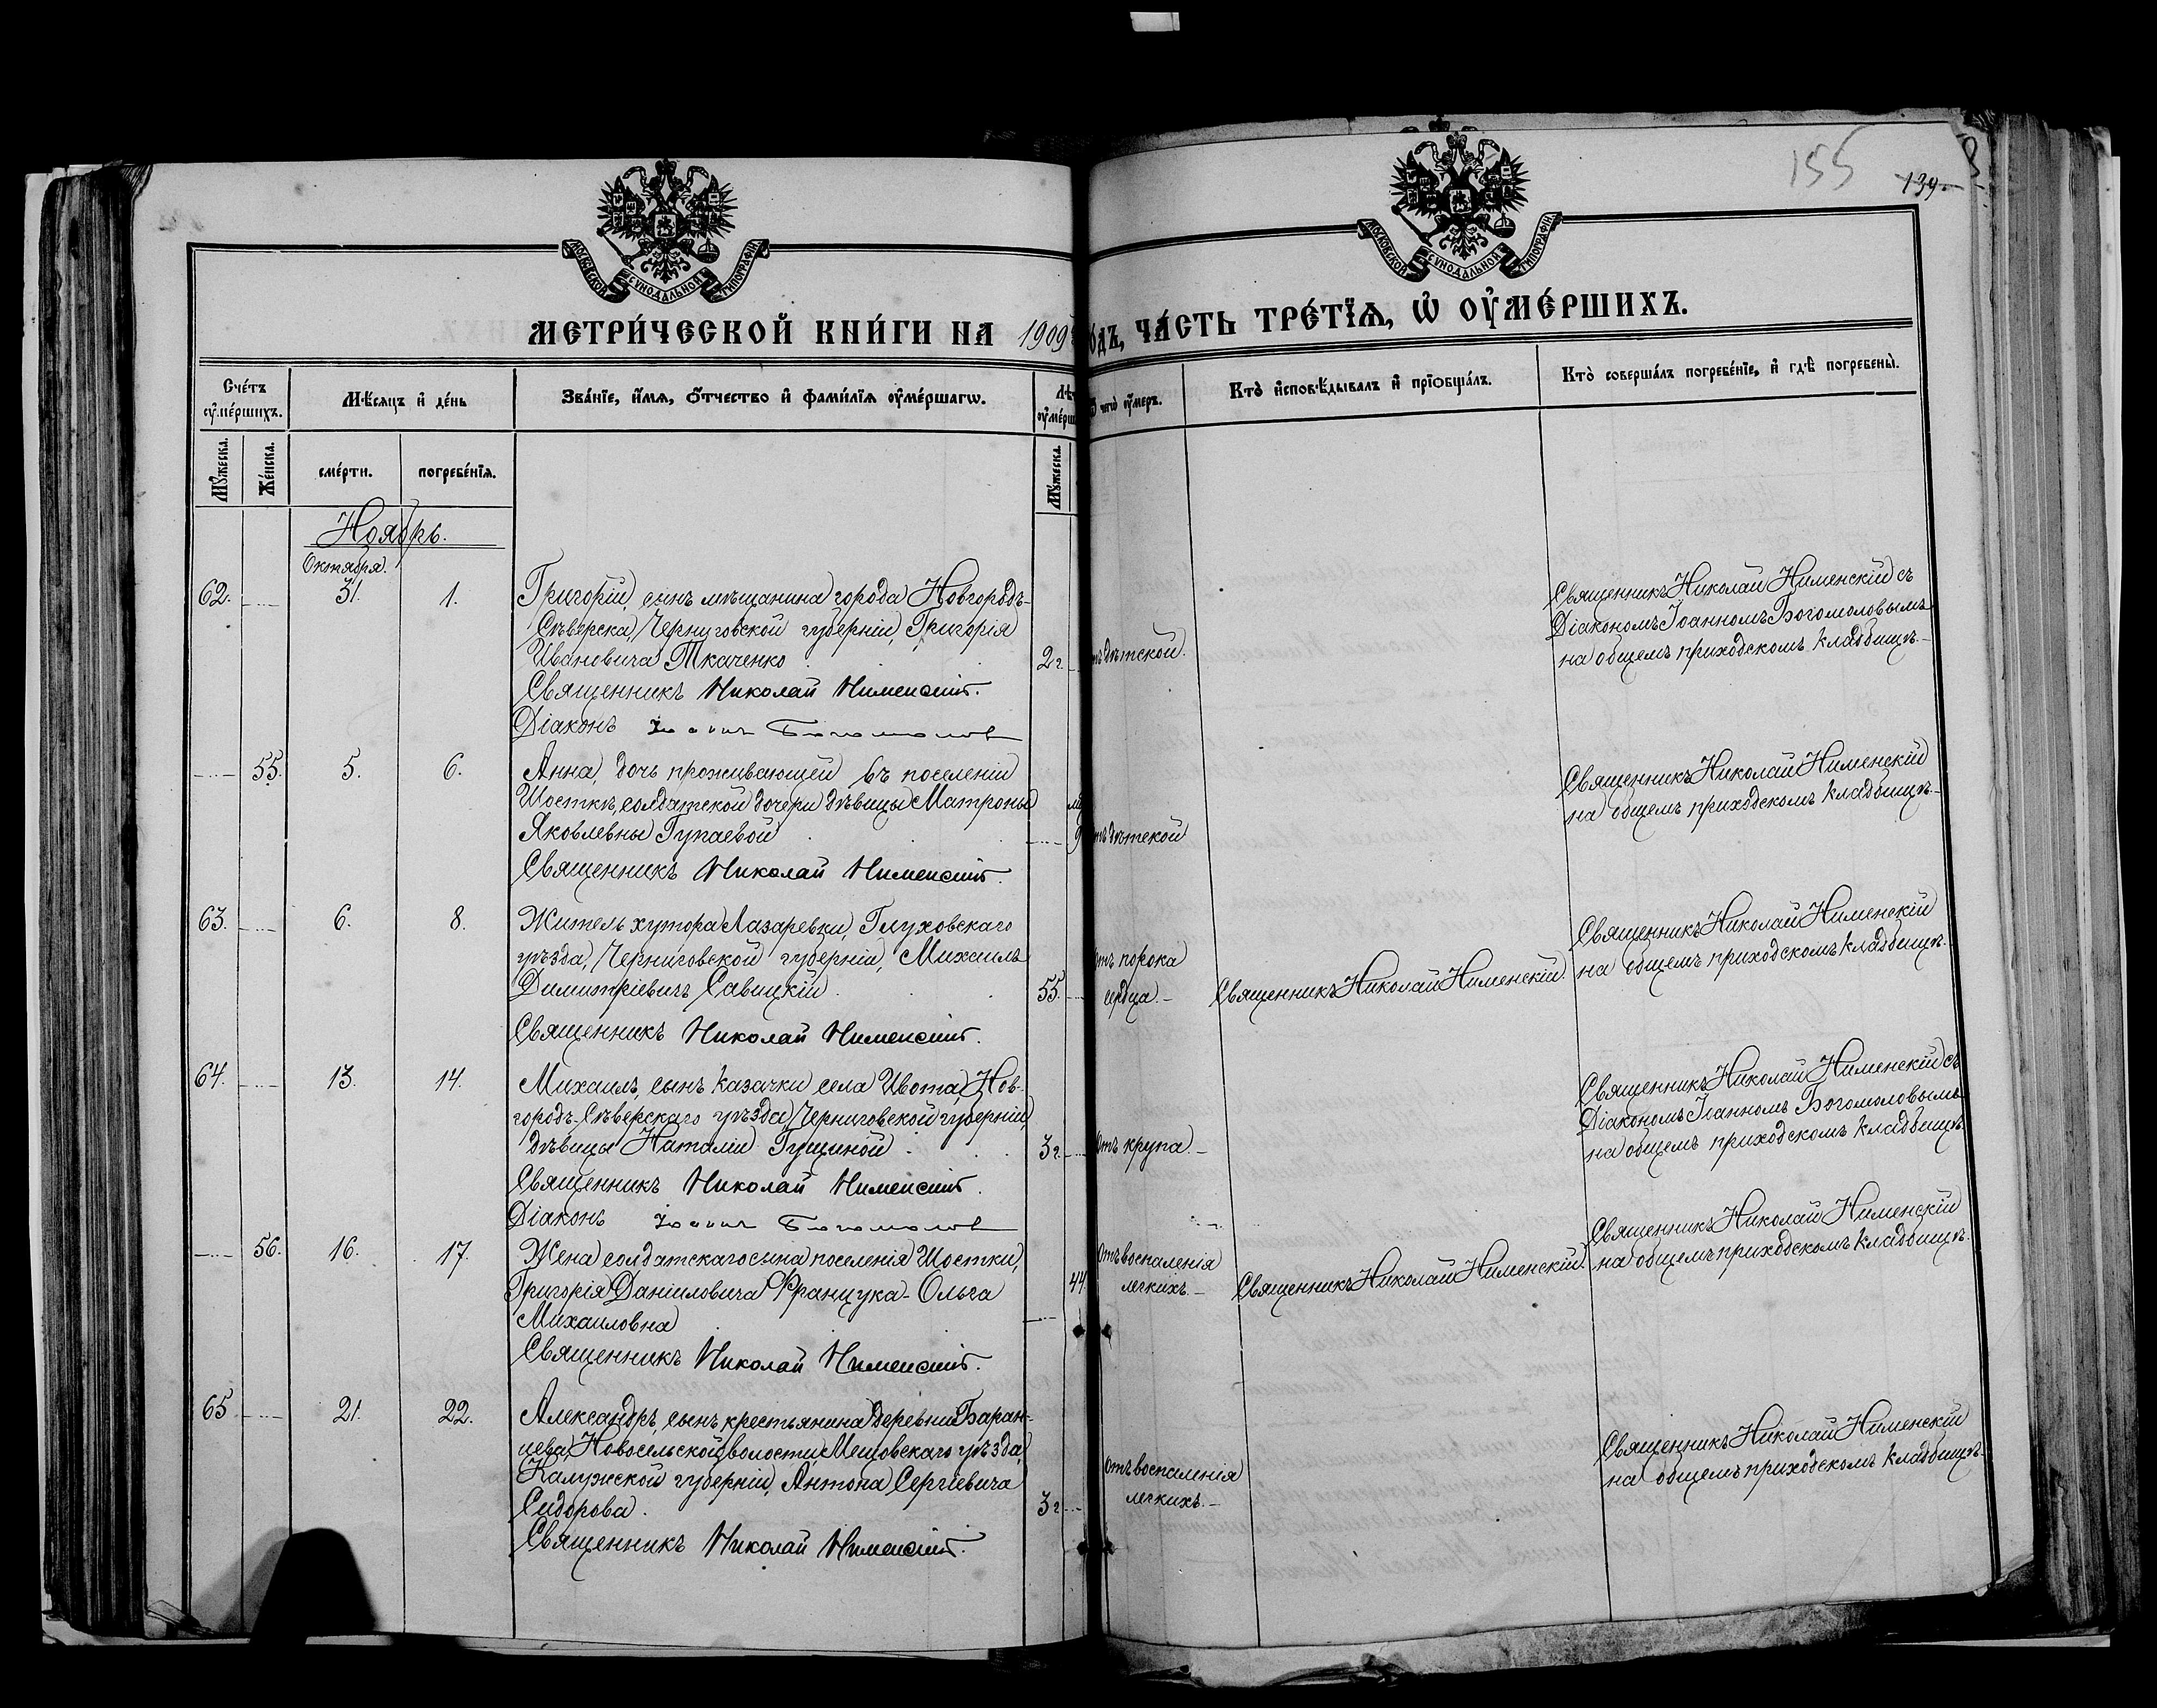 155
139
МОСКОВСКОЙ СѴНОДАЛЬНОЙ ТИПОГРАФІИ
МОСКОВСКОЙ СѴНОДАЛЬНОЙ ТИПОГРАФІИ
МЕТРИ́ЧЕСКОЙ КНИ́ГИ НА 1909 ЧА́СТЬ ТРЕ́ТЇѦ, Ѡ҆ ОУ҆МЕ́РШИХЪ.
Сче́тъ оу҆ме́ршихъ.
Мѣ́сяцъ и҆ де́нь
Зва́нїе, и҆́мѧ, ѻ҆́тчество и҆ фами́лїѧ оу҆ме́ршагѡ.
чегѡ̀ оу҆́меръ.
Кто̀ и҆сповѣ́дывалъ и҆ прїѡбща́лъ.
Кто̀ соверша́лъ погребе́нїе, и҆ гдѣ̀ погребены̀.
Мꙋ́жеска.
Же́нска.
сме́рти.
погребе́нїѧ.
Мꙋ́жеска.
Ноябрь.
Октября.
62. 31. 1. Григорій, сынъ мѣщанина города Новгородъ-
Сѣверска, Черниговской губерніи, Григорія
Ивановича Ткаченко 2 г.
Священникъ Николай Нименскій.
Діаконъ Іоаннъ Богомоловъ
дѣтской.
Священникъ Николай Нименскій съ
Діакономъ Іоанномъ Богомоловымъ
на общемъ приходскомъ кладбищѣ.
55. 5. 6. Анна, дочь проживающей въ поселеніи
Шосткѣ, солдатской дочери дѣвицы Матроны
Яковлевны Гупаевой
Священникъ Николай Нименскій.
дѣтской
Священникъ Николай Нименскій
на общемъ приходскомъ кладбищѣ.
63. 6. 8. Житель хутора Лазаревки, Глуховскаго
уѣзда, Черниговской губерніи, Михаилъ
Димитріевичъ Савицкій 55.
Священникъ Николай Нименскій.
отъ порока
сердца.
Священникъ Николай Нименскій.
Священникъ Николай Нименскій
на общемъ приходскомъ кладбищѣ.
64. 13. 14. Михаилъ, сынъ казачки села Ивота, Нов-
городъ-Сѣверскаго уѣзда, Черниговской губерніи,
дѣвицы Наталіи Гущиной 3 г.
Священникъ Николай Нименскій.
Діаконъ Іоаннъ Богомоловъ
Отъ крупа.
Священникъ Николай Нименскій съ
Діакономъ Іоанномъ Богомоловымъ
на общемъ приходскомъ кладбищѣ.
56. 16. 17. Жена солдатскаго сына поселенія Шостки,
Григорія Даніиловича Францука - Ольга 44
Михаиловна
Священникъ Николай Нименскій.
Отъ воспаленія
легкихъ.
Священникъ Николай Нименскій.
Священникъ Николай Нименскій
на общемъ приходскомъ кладбищѣ.
65 21. 22. Александръ, сынъ крестьянина деревни Баран-
цева, Новосельской волости, Мещовскаго уѣзда,
Калужской губерніи, Антона Сергіевича
Сидорова. 3 г.
Священникъ Николай Нименскій.
отъ воспаленія
легкихъ.
Священникъ Николай Нименскій
на общемъ приходскомъ кладбищѣ.